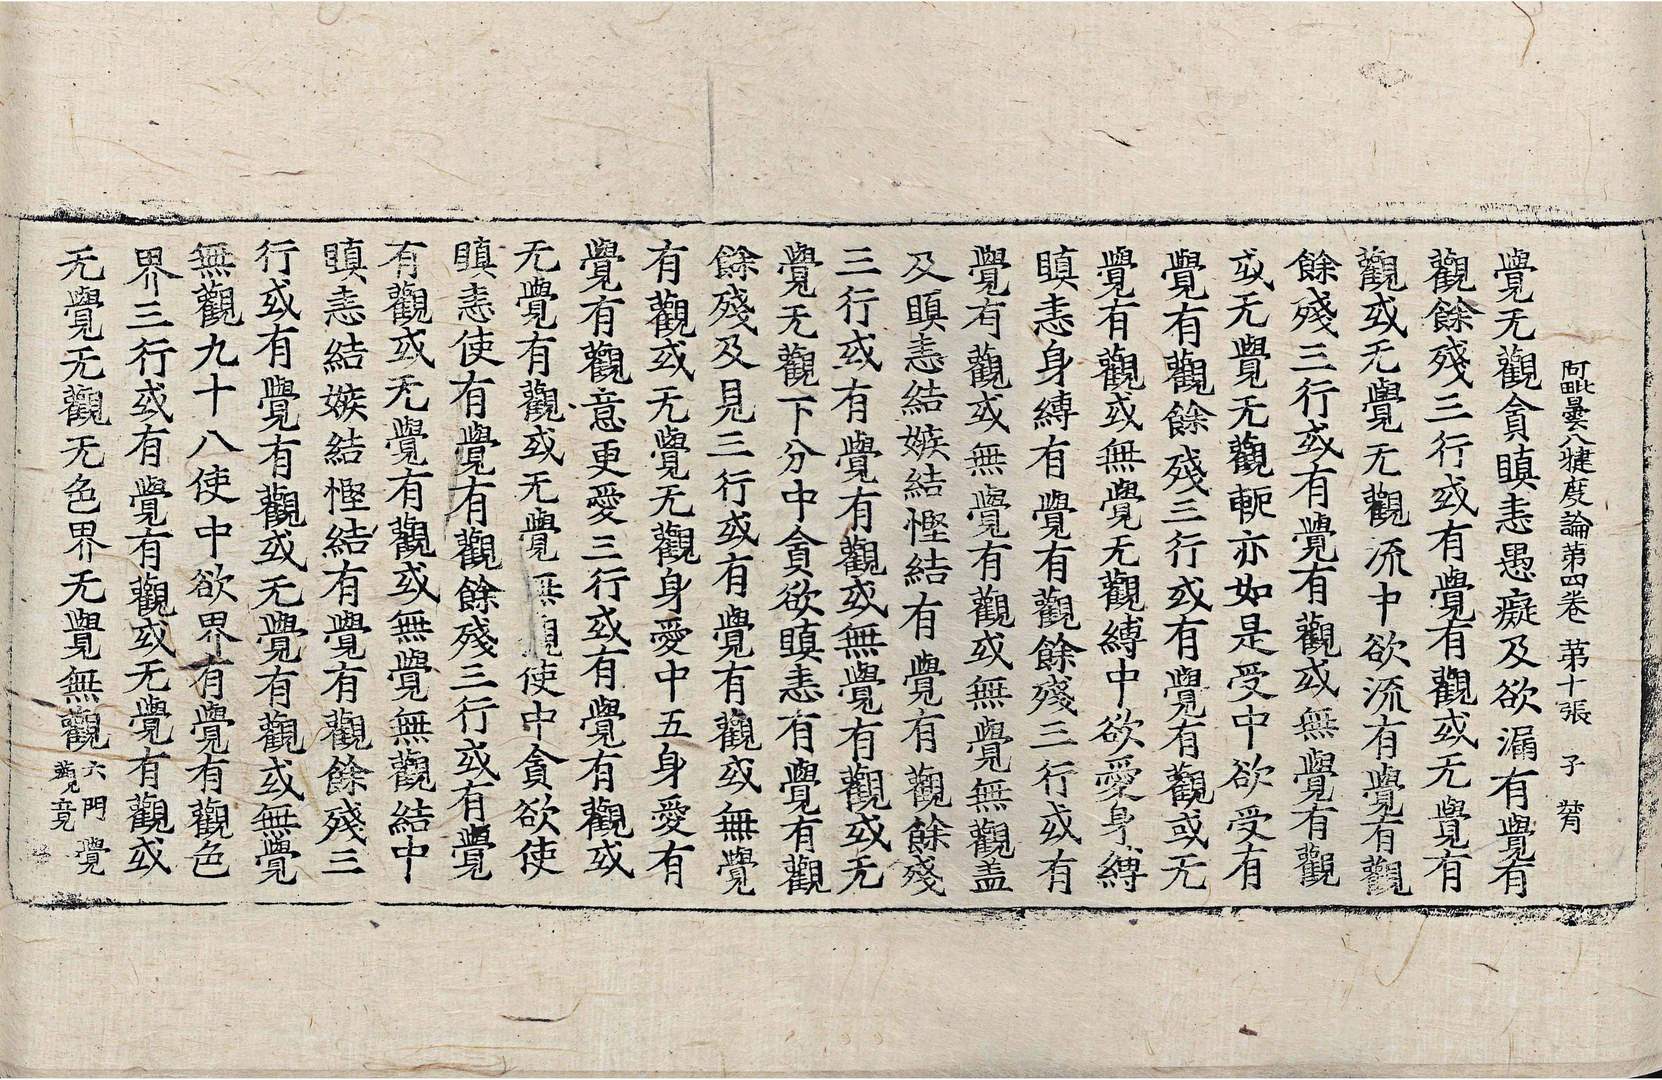 阿毗曇八犍度論第四卷 第十張 子
覺无觀貪瞋恚愚癡及欲漏有覺有
觀餘殘三行或有覺有觀或无覺有
觀或无覺无觀流中欲流有覺有觀
餘殘三行或有覺有觀或無覺有觀
或无覺无觀軛亦如是受中欲受有
覺有觀餘殘三行或有覺有觀或无
覺有觀或無覺无觀縛中欲愛身縛
瞋恚身縛有覺有觀餘殘三行或有
覺有觀或無覺有觀或無覺無觀盖
及瞋恚結嫉結慳結有覺有觀餘殘
三行或有覺有觀或無覺有觀或无
覺无觀下分中貪欲瞋恚有覺有觀
餘殘及見三行或有覺有觀或無覺
有觀或无覺无觀身愛中五身愛有
覺有觀意更愛三行或有覺有觀或
无覺有觀或无覺無觀使中貪欲使
瞋恚使有覺有觀餘殘三行或有覺
有觀或无覺有觀或無覺無觀結中
瞋恚結嫉結慳結有覺有觀餘殘三
行或有覺有觀或无覺有觀或無覺
無觀九十八使中欲界有覺有觀色
界三行或有覺有觀或无覺有觀或
无覺无觀无色界无覺無觀
六門覺
觀竟